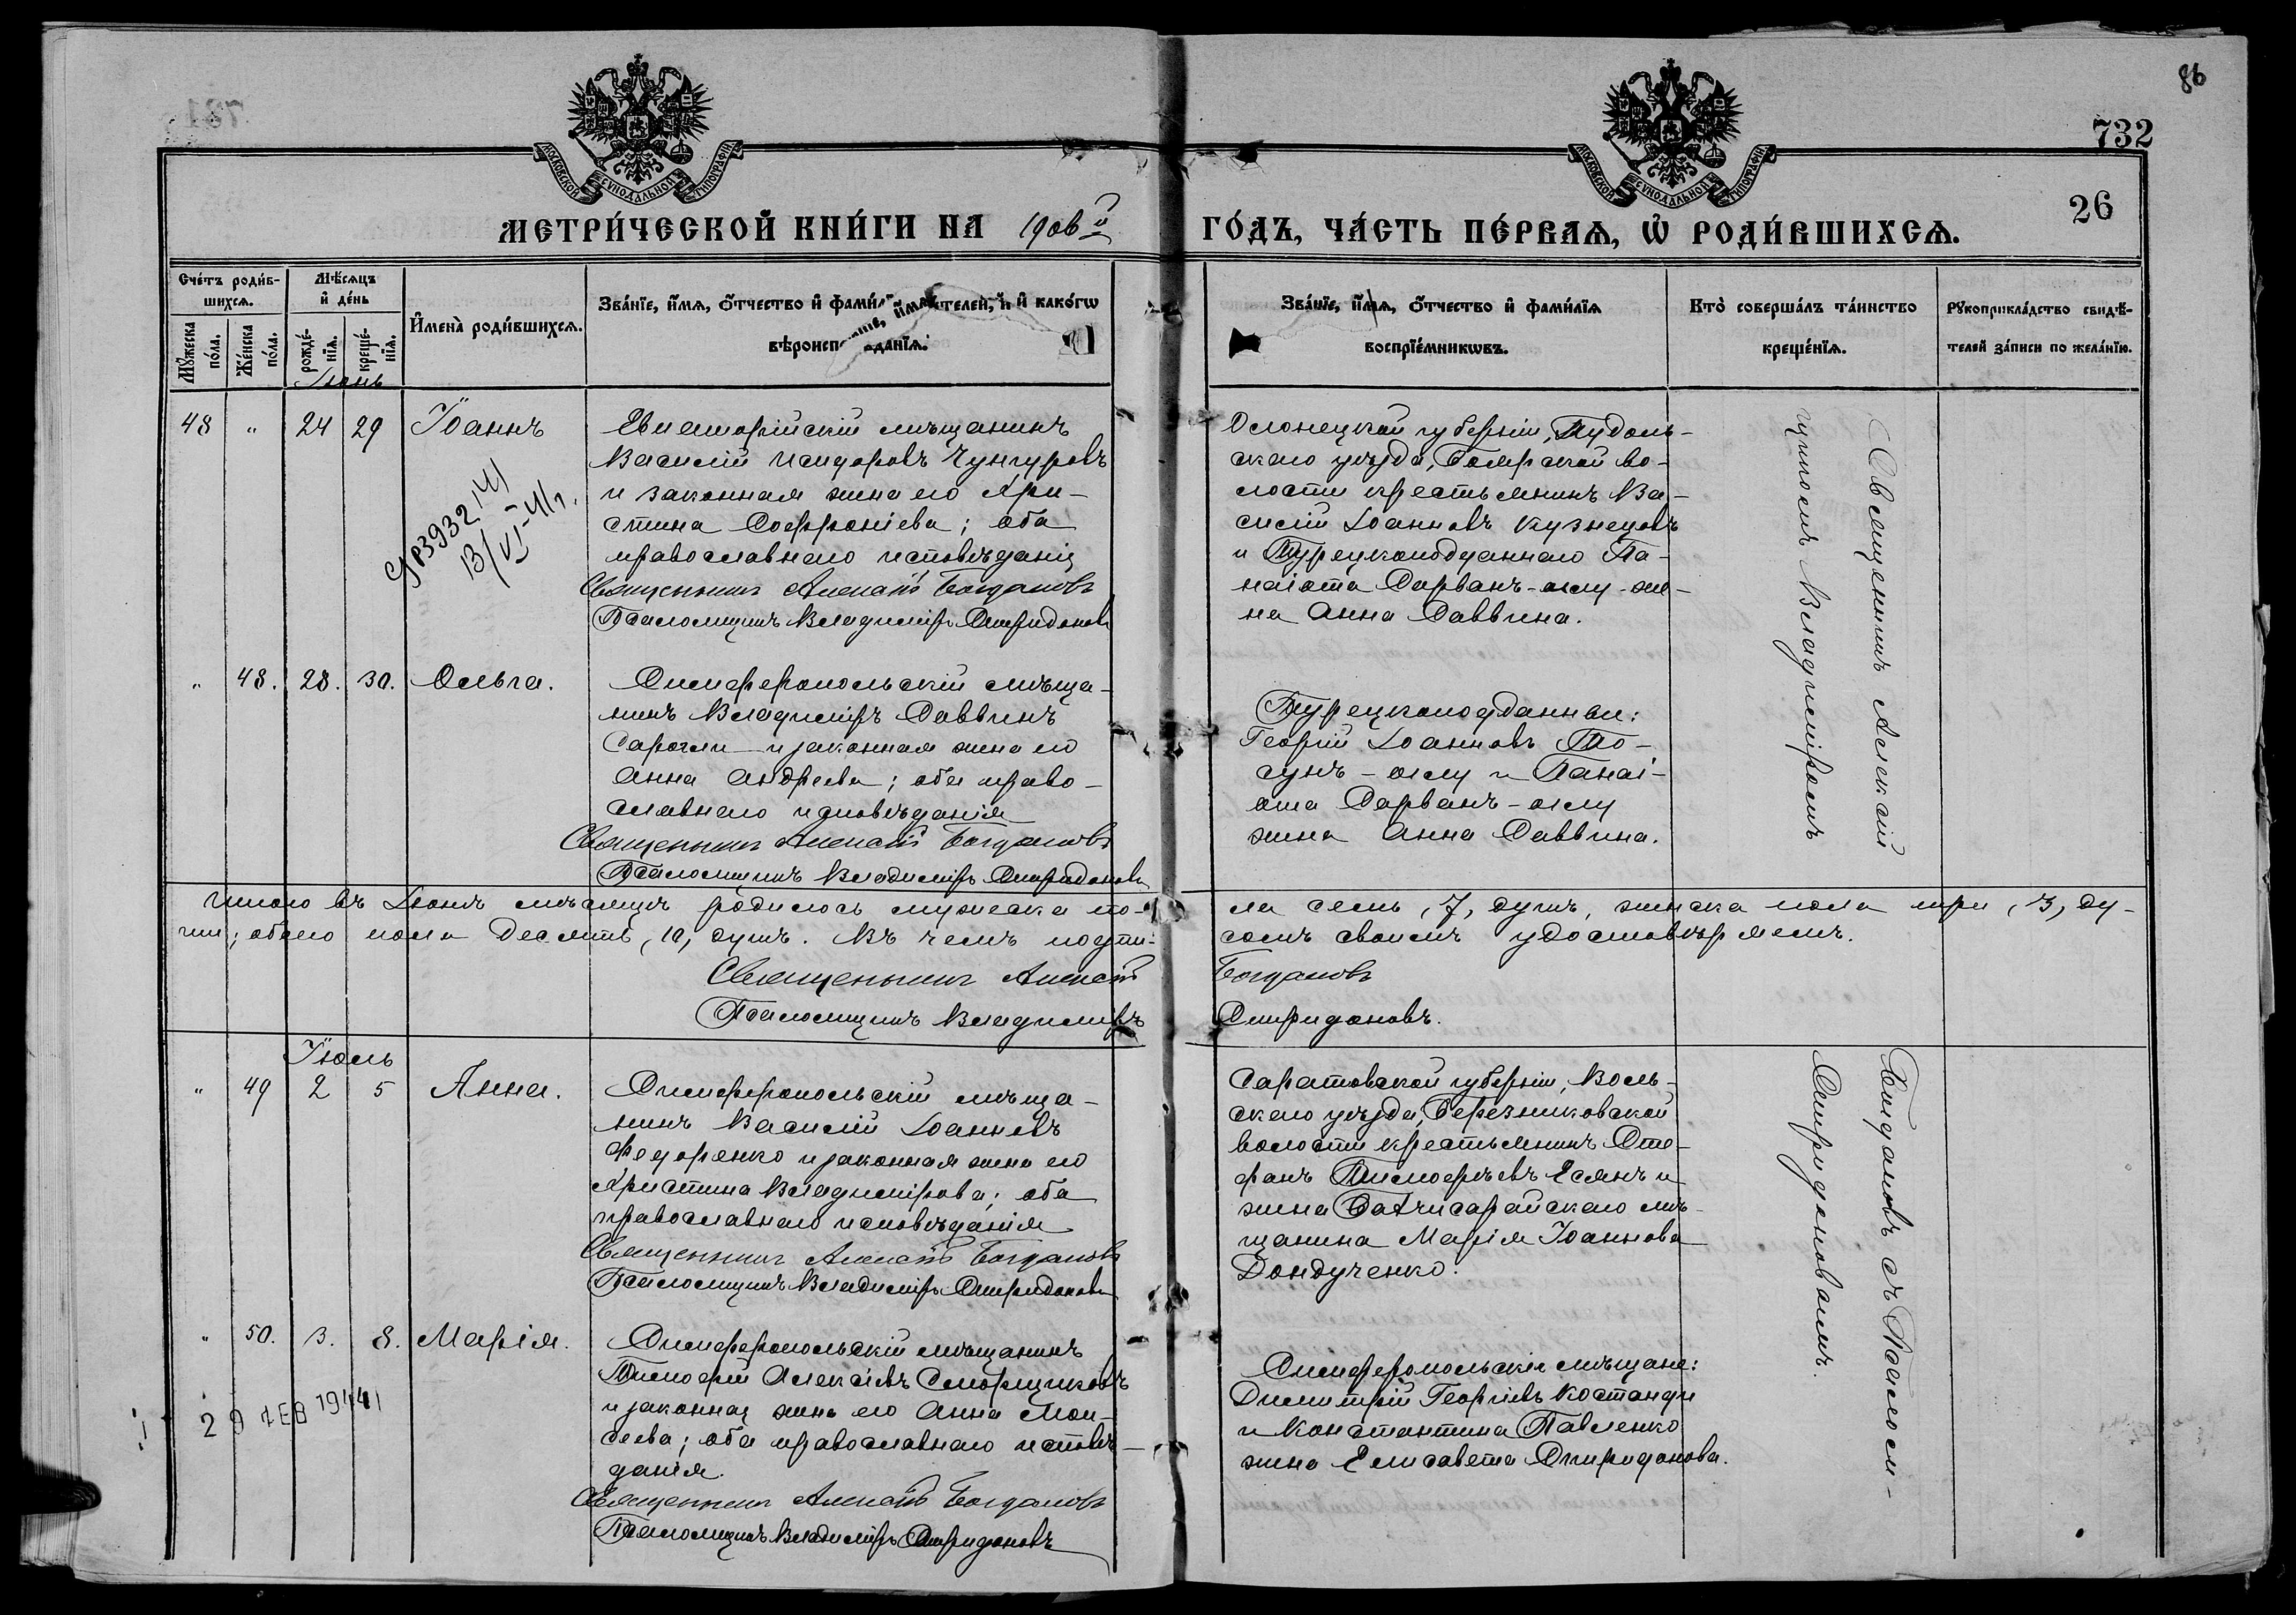 86
732
26
МОСКОВСКОЙ СѴНОДАЛЬНОЙ ТИПОГРАФІИ
МОСКОВСКОЙ СѴНОДАЛЬНОЙ ТИПОГРАФІИ
МЕТРИ́ЧЕСКОЙ КНИ́ГИ НА 1906й
ГО́ДЪ, ЧА́СТЬ ПЕ́РВАѦ, Ѽ РОДИ́ВШИХСѦ.
Сче́тъ роди́в-
шихсѧ.
Мѣ́сѧцъ
и҆ де́нь
Мꙋ́жеска
по́ла.
Же́нска
по́ла.
рожде́-
нїѧ.
креще́-
нїѧ.
И҆мена̀ роди́вшихсѧ.
Зва́нїе, и҆́мѧ, ѻ҆́тчество и҆ како́гѡ
Зва́нїе, и҆́мѧ, ѻ҆́тчество и҆ фами́лїѧ
воспрїе́мникѡвъ.
Кто̀ соверша́лъ та́инство
креще́нїѧ.
Рꙋкоприкла́дство свидѣ́-
телей за́писи по жела́нїю.
Іюнь
48 " 24 29 Іоаннъ
Евпаторійскій мѣщанинъ
Василій Исидоровъ Чунгуровъ
и законная жена его Хри-
стина Софроніева; оба
православнаго исповѣданія
Священникъ Алексій Богдановъ
Псаломщикъ Владиміръ Спиридоновъ
13/VI-41г.
Олонецкой губерніи, Пудож-
скаго уѣзда, волости крестьянинъ Ва-
силій Іоанновъ Кузнецовъ
и Турецкоподданнаго Па-
наіота Дарванъ-оглу же-
на Анна Саввина.
" 48. 28. 30. Ольга.
Симферопольскій мѣща-
нинъ Владиміръ Саввинъ
Сарогли и законная жена его
Анна Андреева; оба право-
славнаго исповѣданія
Священникъ Алексій Богдановъ
Псаломщикъ Владиміръ Спиридоновъ
Турецкоподданные:
Георгій Іоанновъ То-
сунъ-оглу и Панаі-
ота Дарванъ-оглу
жена Анна Саввина.
Священникъ Алексій
Богдановъ съ Псалом-
щикомъ Владиміромъ
Спиридоновымъ.
Итого въ Іюнѣ мѣсяцѣ родилось мужеска по-
ла семь, 7, душъ, женска пола три, 3, ду-
ши; обоего пола десять, 10, душъ. Въ чемъ подпи-
сомъ своимъ удостовѣряемъ.
Священникъ Алексій Богдановъ
Псаломщикъ Владиміръ Спиридоновъ.
Іюль
" 49 2 5 Анна.
Симферопольскій мѣща-
нинъ Василій Іоанновъ
Федоренко и законная жена его
Христина Владимірова; оба
православнаго исповѣданія
Священникъ Алексій Богдановъ
Псаломщикъ Владиміръ Спиридоновъ
Саратовской губерніи, Воль-
скаго уѣзда, Березниковской
волости крестьянинъ Сте-
фанъ Тимофѣевъ Есянъ и
жена Бахчисарайскаго мѣ-
щанина Марія Іоаннова
Дондученко.
" 50. 3. 8. Марія.
Симферопольскій мѣщанинъ
Тимофей Алексіевъ Сморщиковъ
и законная жена его Анна Мои-
сеева; оба православнаго исповѣ-
данія.
Священникъ Алексій Богдановъ
Псаломщикъ Владиміръ Спиридоновъ
Симферопольскіе мѣщане:
Димитрій Георгіевъ Костанди
и Константина Павленко
жена Елисавета Спиридонова.